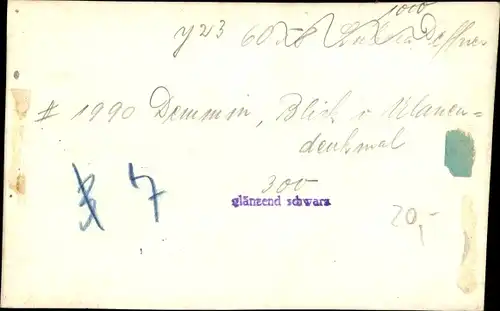 1000
y 23 60
II 1990 Demmin, Blick v Ulanen=
denkmal
3 7
300
glänzend schwarz
20,-